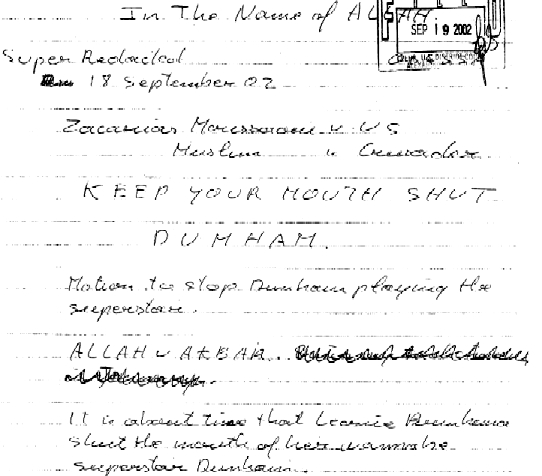 In The Name of ALLAH
SEP 19 2002
Super Redacted
18 September 02
Zacarias Moussaoui v US
Muslim v Crusader
KEEP YOUR MOUTH SHUT
DUNHAM.
Motion to stop Dunham playing the
superstar.
ALLAH U AKBAR.
It is about time that Leonie Brinkema
shut the mouth of her wannabe
superstar Dunham.